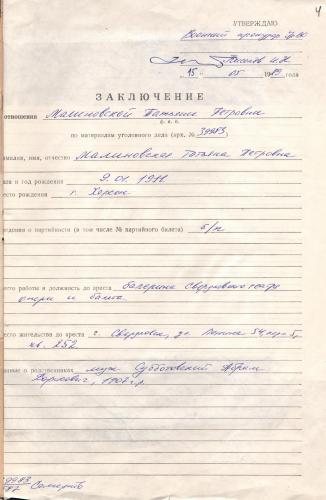 4
УТВЕРЖДАЮ
Военный прокурор УрВО
"15" 05 1989 года
ЗАКЛЮЧЕНИЕ
отношении Малиновской Татьяны Петровны
ф. и. о.
по материалам уголовного дела (арх. № 39983
амилия, имя, отчество Малиновская Татьяна Петровна
и год рождения 9.01.1911
есто рождения г. Херсон
ведения о партийности (в том числе № партийного билета) б/п
есто работы и должность до ареста балерина Свердловского театра
оперы и балета
есто жительства до ареста г. Свердловск, ул. Ленина 54,
кв. 252.
анные о родственниках муж Субботовский Абрам
1907 г.р.